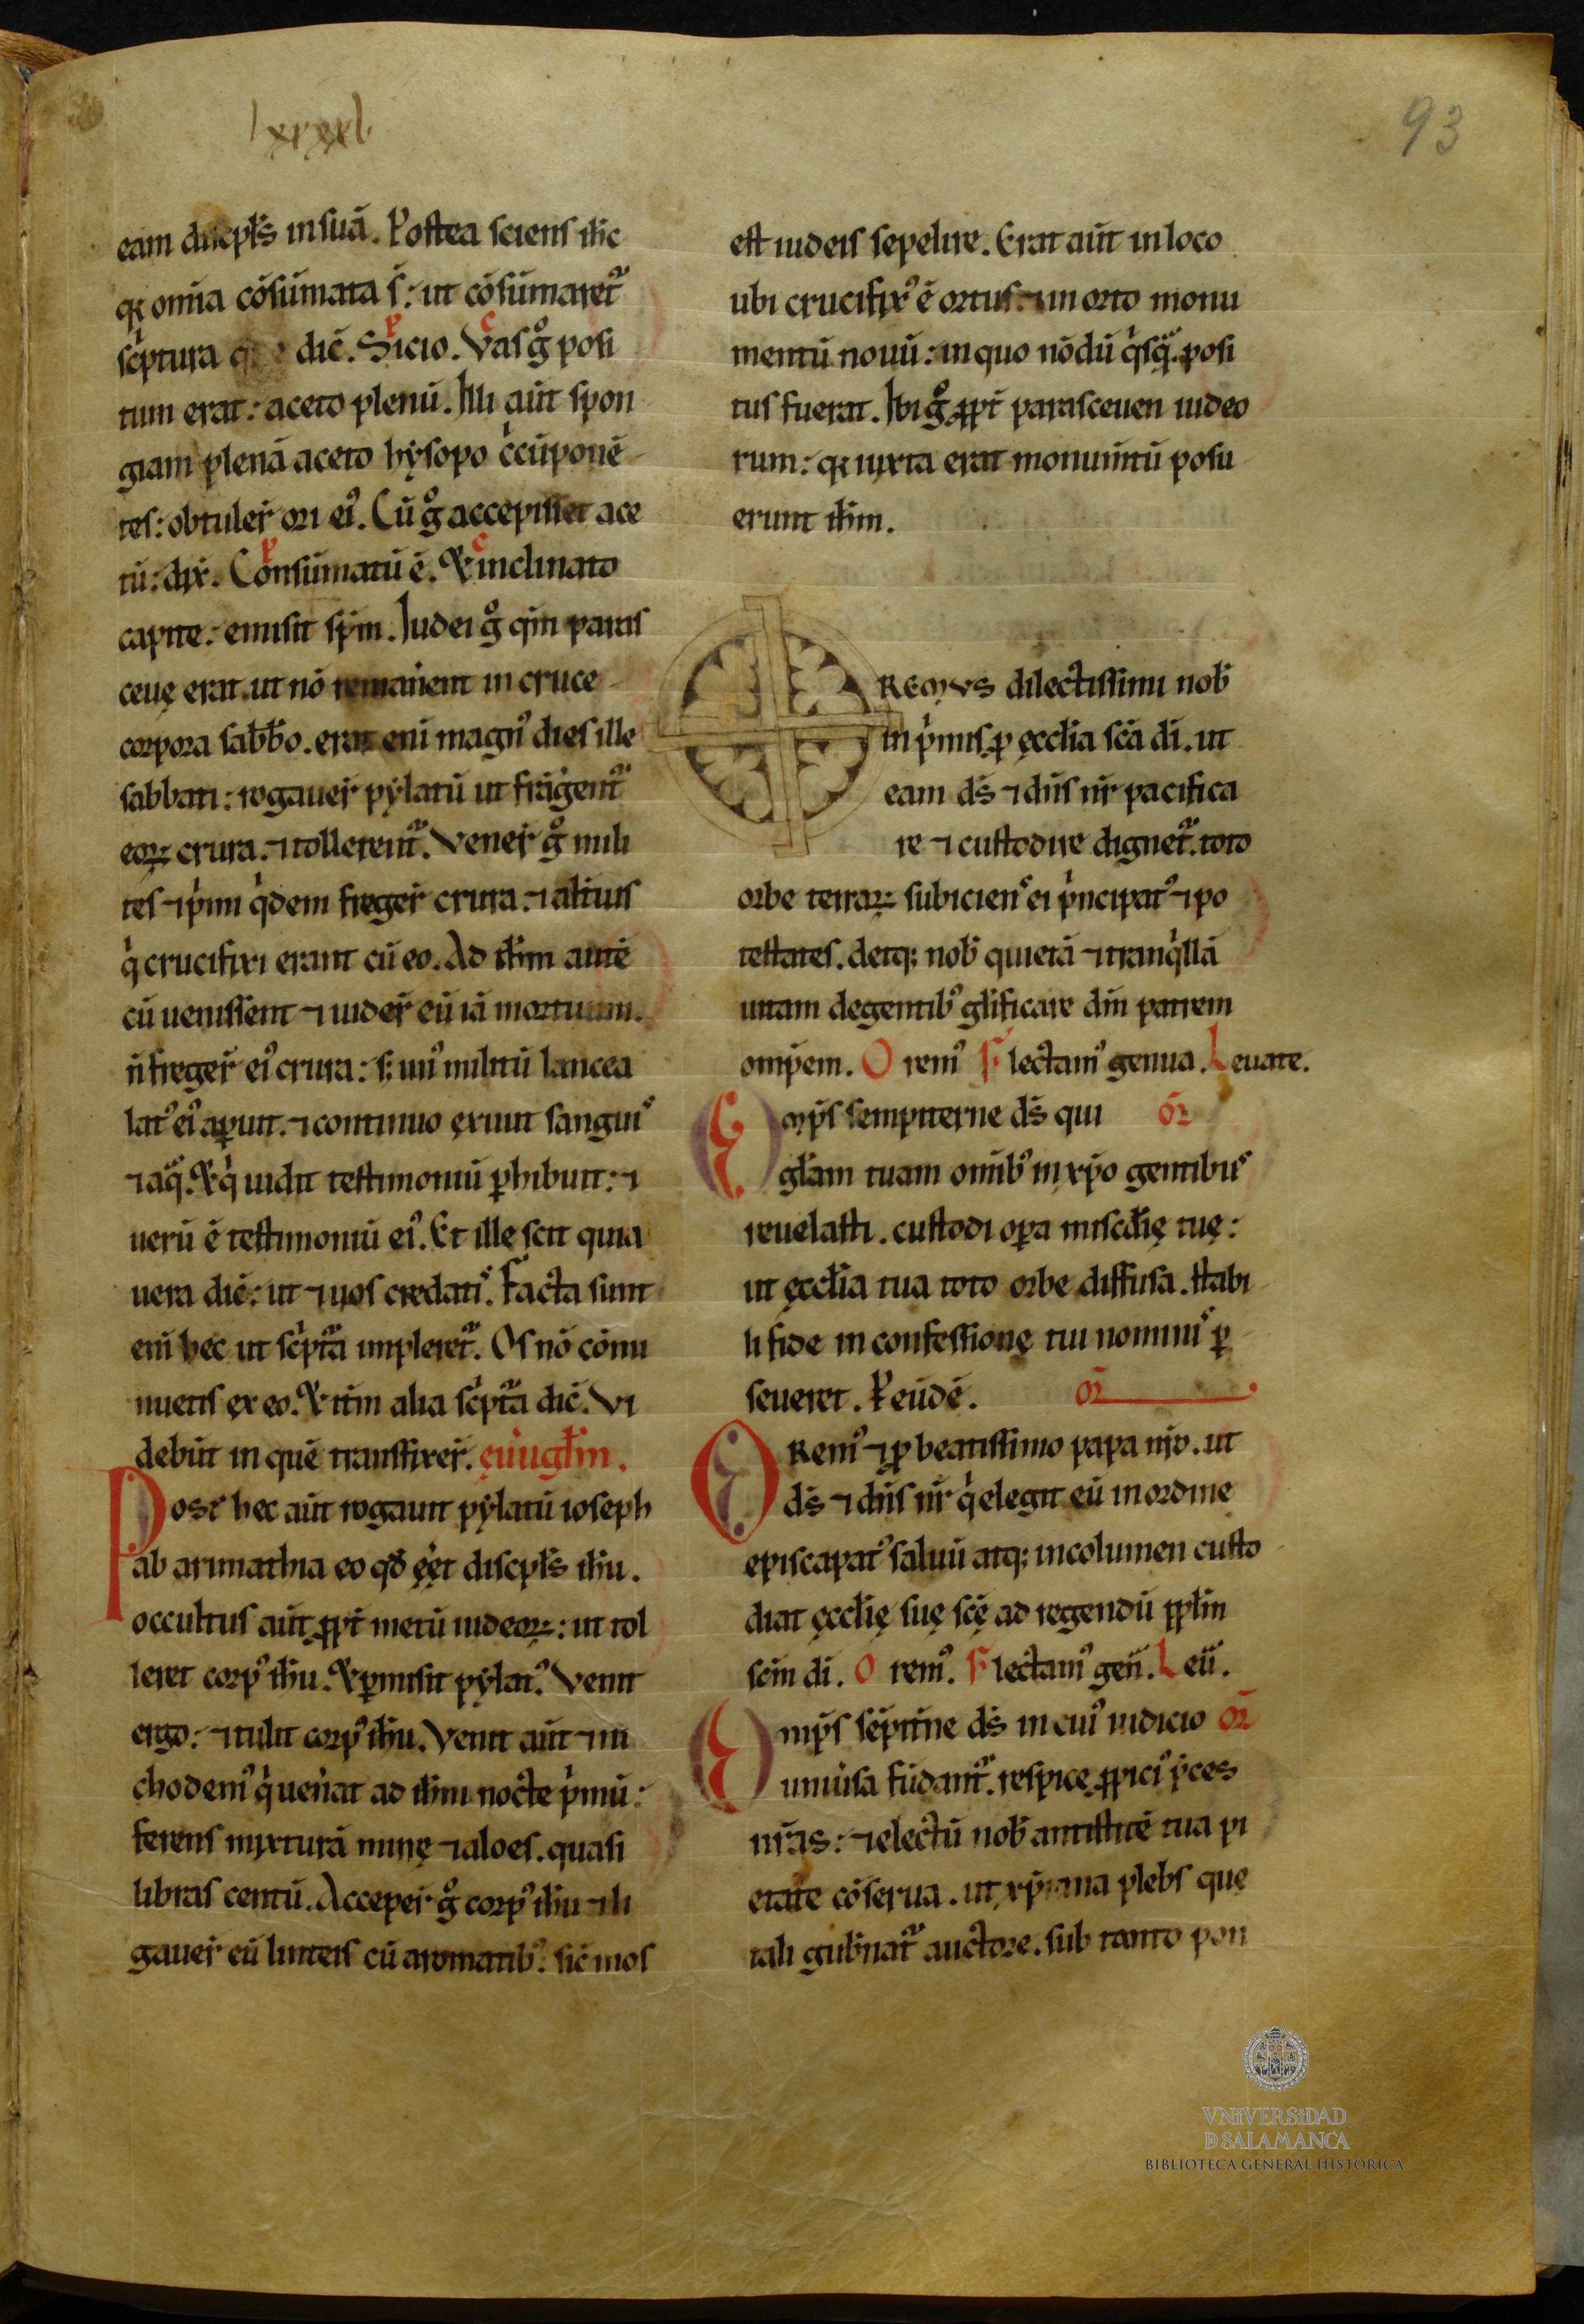 lxxxxl
93
eam discipłs in suā. Postea sciens ihc
qꝛ om̄ia cōsūmata s̄: ut cōsūmaretᷣ
scͥptura dic̄. Sicio. Vas gͦ posi
tum erat: aceto plenū. Illi aūt spon
giam plenā aceto hẏsopo cͥcūponē
tes: obtuler̄ ori ei᾽. Cū gͦ accepisset ace
tū: dix̄. Consūmatū ē. Et inclinato
capite: emisit sp̄m. Iudei gͦ qm̄ paras
ceuę erat. ut nō remanerent in cruce
corpora sabb̄o. erat eni magn᾽ dies ille
sabbati: rogauer̄ pẏlatū ut frāgerentᷣ
eoꝝ crura. ⁊ tollerentᷣ. Vener̄ gͦ mili
tes ⁊ pͥmi qͥdem freger̄ crura. ⁊ alterius
qͥ crucifixi erant cū eo. Ad ihm̄ autē
cū uenissent ⁊ uider̄ eū iā mortuum.
n̄ freger̄ ei᾽ crura: s; un᾽ militū lancea
lat᾽ ei᾽ aꝑuit. ⁊ continuo exiuit sanguis
⁊ aqᷓ. Et qͥ uidit testimoniū ꝑhibuit: ⁊
uerū ē testimoniū ei᾽. Et ille scit quia
uera dic̄: ut ⁊ uos credatis. Facta sunt
eni hec ut scͥptᷓa impleretᷣ. Os nō cōmi
nuetis ex eo. Et itm̄ alia scͥptᷓa dic̄. Vi
debūt in quē transfixer̄. euu̅głm.
Post hec aūt rogauit pẏlatū ioseph
ab arimathia eo qđ eēt discipłs ihu.
occultus aūt ꝓpt̄ metū iudeoꝝ: ut tol
leret corp᾽ ihu. Et ꝑmisit pẏlat᾽. Venit
ergo: ⁊ tulit corp᾽ ihu. Venit aūt ⁊ ni
chodem᾽ qͥ uenerat ad ihm nocte pͥmū:
ferens mixturā mirre ⁊ aloes. quasi
libras centū. Acceper̄ gͦ corp᾽ ihu ⁊ li
gauer̄ eū linteis cū aromatib᾽. sic̄ mos
est iudeis sepelire. Erat aūt in loco
ubi crucifix᾽ ē ortus. ⁊ in orto monu
mentū nouū: in quo nōdū qͥsqᷓ. posi
tus fuerat. Ibi gͦ ꝓpt̄ parasceuen iudeo
rum: qꝛ iuxta erat monum̄tū posu
erunt ihm.
OREMVS dilectissimi nob̄
in pͥmis ꝓ ęccłia scā di. ut
eam ds̄ ⁊ dn̄s nr̄ pacifica
re ⁊ custodire dignetᷣ. toto
orbe terraꝝ subiciens ei pͥncipat᾽ ⁊ po
testates. detq; nob̄ quietā ⁊ tranqͥllā
uitam degentib᾽ glificare dm̄ patrem
omp̄em. O rem᾽ F lectam᾽ genua. L euate.
Omp̄s sempiterne ds̄ qui or̄
głam tuam omib᾽ in xp̄o gentibus
reuelasti. custodi oꝑa misc̄die tuę:
ut ęccłia tua toto orbe diffusa. stabi
li fide in confessionę tui nominis ꝑ
seueret. P eūdē. or̄
ORem᾽ ⁊ ꝓ beatissimo papa nr̄o. ut
ds̄ ⁊ dn̄s nr̄ qͥ elegit eū in ordine
episcapat᾽ saluū atq; incolumen custo
diat ęccłię suę scę ad regendū ppłm
scm̄ di. O rem᾽. F lectam᾽ gen̄. L eū.
Omp̄s sēpitne ds̄ in cui᾽ iudicio or̄
uniūsa fūdantᷣ. respice ꝓpici᾽ pͥces
nr̄as: ⁊ electū nob̄ antistitē tua pi
etate cōserua. ut xp̄iana plebs que
tali gub̄natᷣ auctore. sub tanto pon
VNiVERSiDAD
D SALAMANCA
BIBLIOTECA GENERAL HISTÓRICA